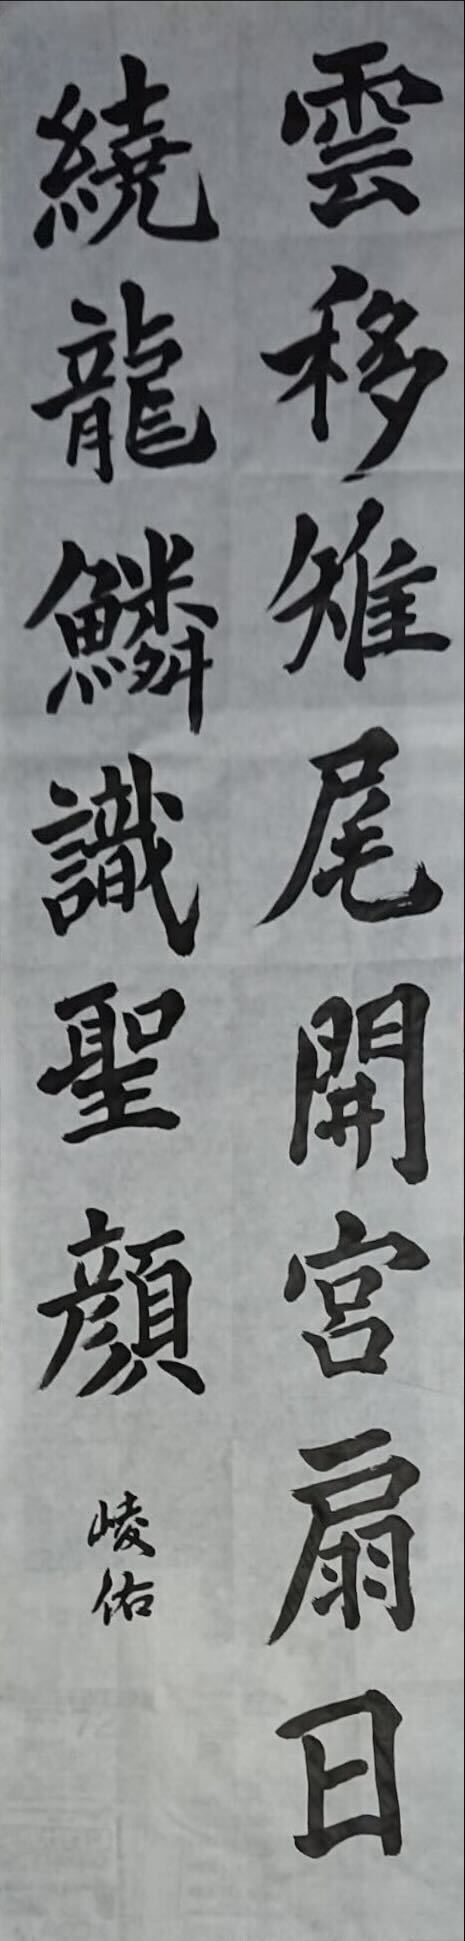 雲移雉尾開宮扇日
繞龍鱗識聖顏
崚佑